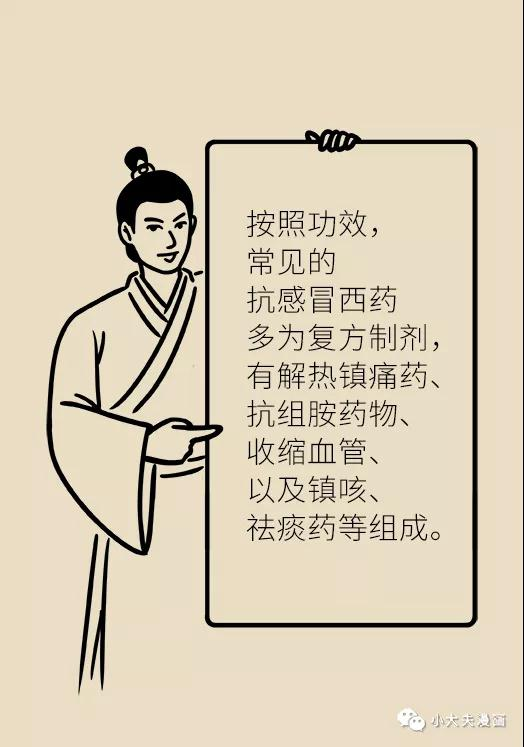 按照功效，
常见的
抗感冒西药
多为复方制剂，
有解热镇痛药、
抗组胺药物、
收缩血管、
以及镇咳、
祛痰药等组成。
小大夫漫画